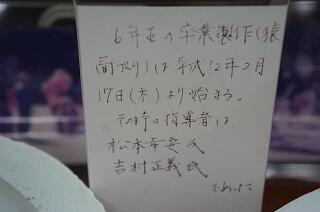 6年生の卒業製作(猿
面づくり)は平成12年2月
17日(木)より始まる。
その時の指導者は、
松本幸要氏
吉村正義氏
であった